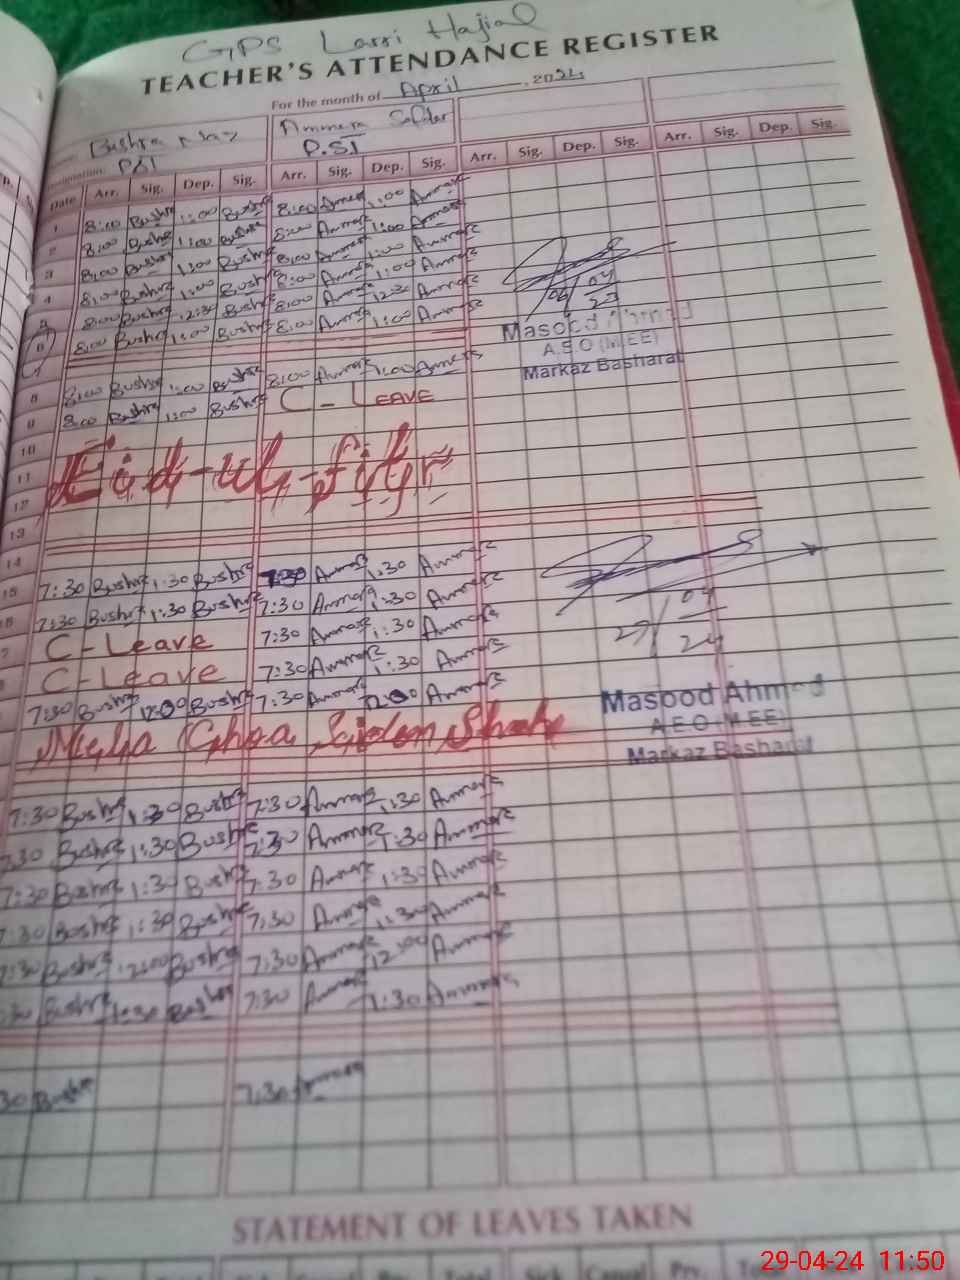 GPS Lassi Hajial
TEACHER'S ATTENDANCE REGISTER
For the month of April, 2024
Bushra Niaz Ammara Safdar
PST P.S.T
Date Arr. Sig. Dep. Sig. Arr. Sig. Dep. Sig. Arr. Sig. Dep. Sig. Arr. Sig. Dep. Sig.
1 8:00 Bushra 1:00 Bushra 8:00 Ammara 1:00 Ammara
2 8:00 Bushra 1:00 Bushra 8:00 Ammara 1:00 Ammara
3 8:00 Bushra 1:00 Bushra 8:00 Ammara 1:00 Ammara
4 8:00 Bushra 1:00 Bushra 8:00 Ammara 1:00 Ammara
5 8:00 Bushra 12:30 Bushra 8:00 Ammara 12:30 Ammara
6 8:00 Bushra 1:00 Bushra 8:00 Ammara 1:00 Ammara
7
06/04
Masood Ahmed
A.E.O (M.EE)
Markaz Basharat
8 8:00 Bushra 1:00 Bushra 8:00 Ammara 1:00 Ammara
9 8:00 Bushra 1:00 Bushra C-LEAVE
10
11 Eid-ul-fitr
12
13
14
15 7:30 Bushra 1:30 Bushra 7:30 Ammara 1:30 Ammara
7:30 Bushra 1:30 Bushra 7:30 Ammara 1:30 Ammara
C-Leave 7:30 Ammara 1:30 Ammara
C-Leave 7:30 Ammara 1:30 Ammara
7:30 Bushra 12:00 Bushra 7:30 Ammara 12:00 Ammara
04
24
Masood Ahmed
A.E.O (M.EE)
Markaz Basharat
7:30 Bushra 1:30 Bushra 7:30 Ammara 1:30 Ammara
7:30 Bushra 1:30 Bushra 7:30 Ammara 1:30 Ammara
7:30 Bushra 1:30 Bushra 7:30 Ammara 1:30 Ammara
7:30 Bushra 1:30 Bushra 7:30 Ammara 1:30 Ammara
7:30 Bushra 12:00 Bushra 7:30 Ammara 12:00 Ammara
:30 Bushra 1:30 Bushra 7:30 Ammara 1:30 Ammara
30 Bushra 7:30 Ammara
STATEMENT OF LEAVES TAKEN
29-04-24 11:50